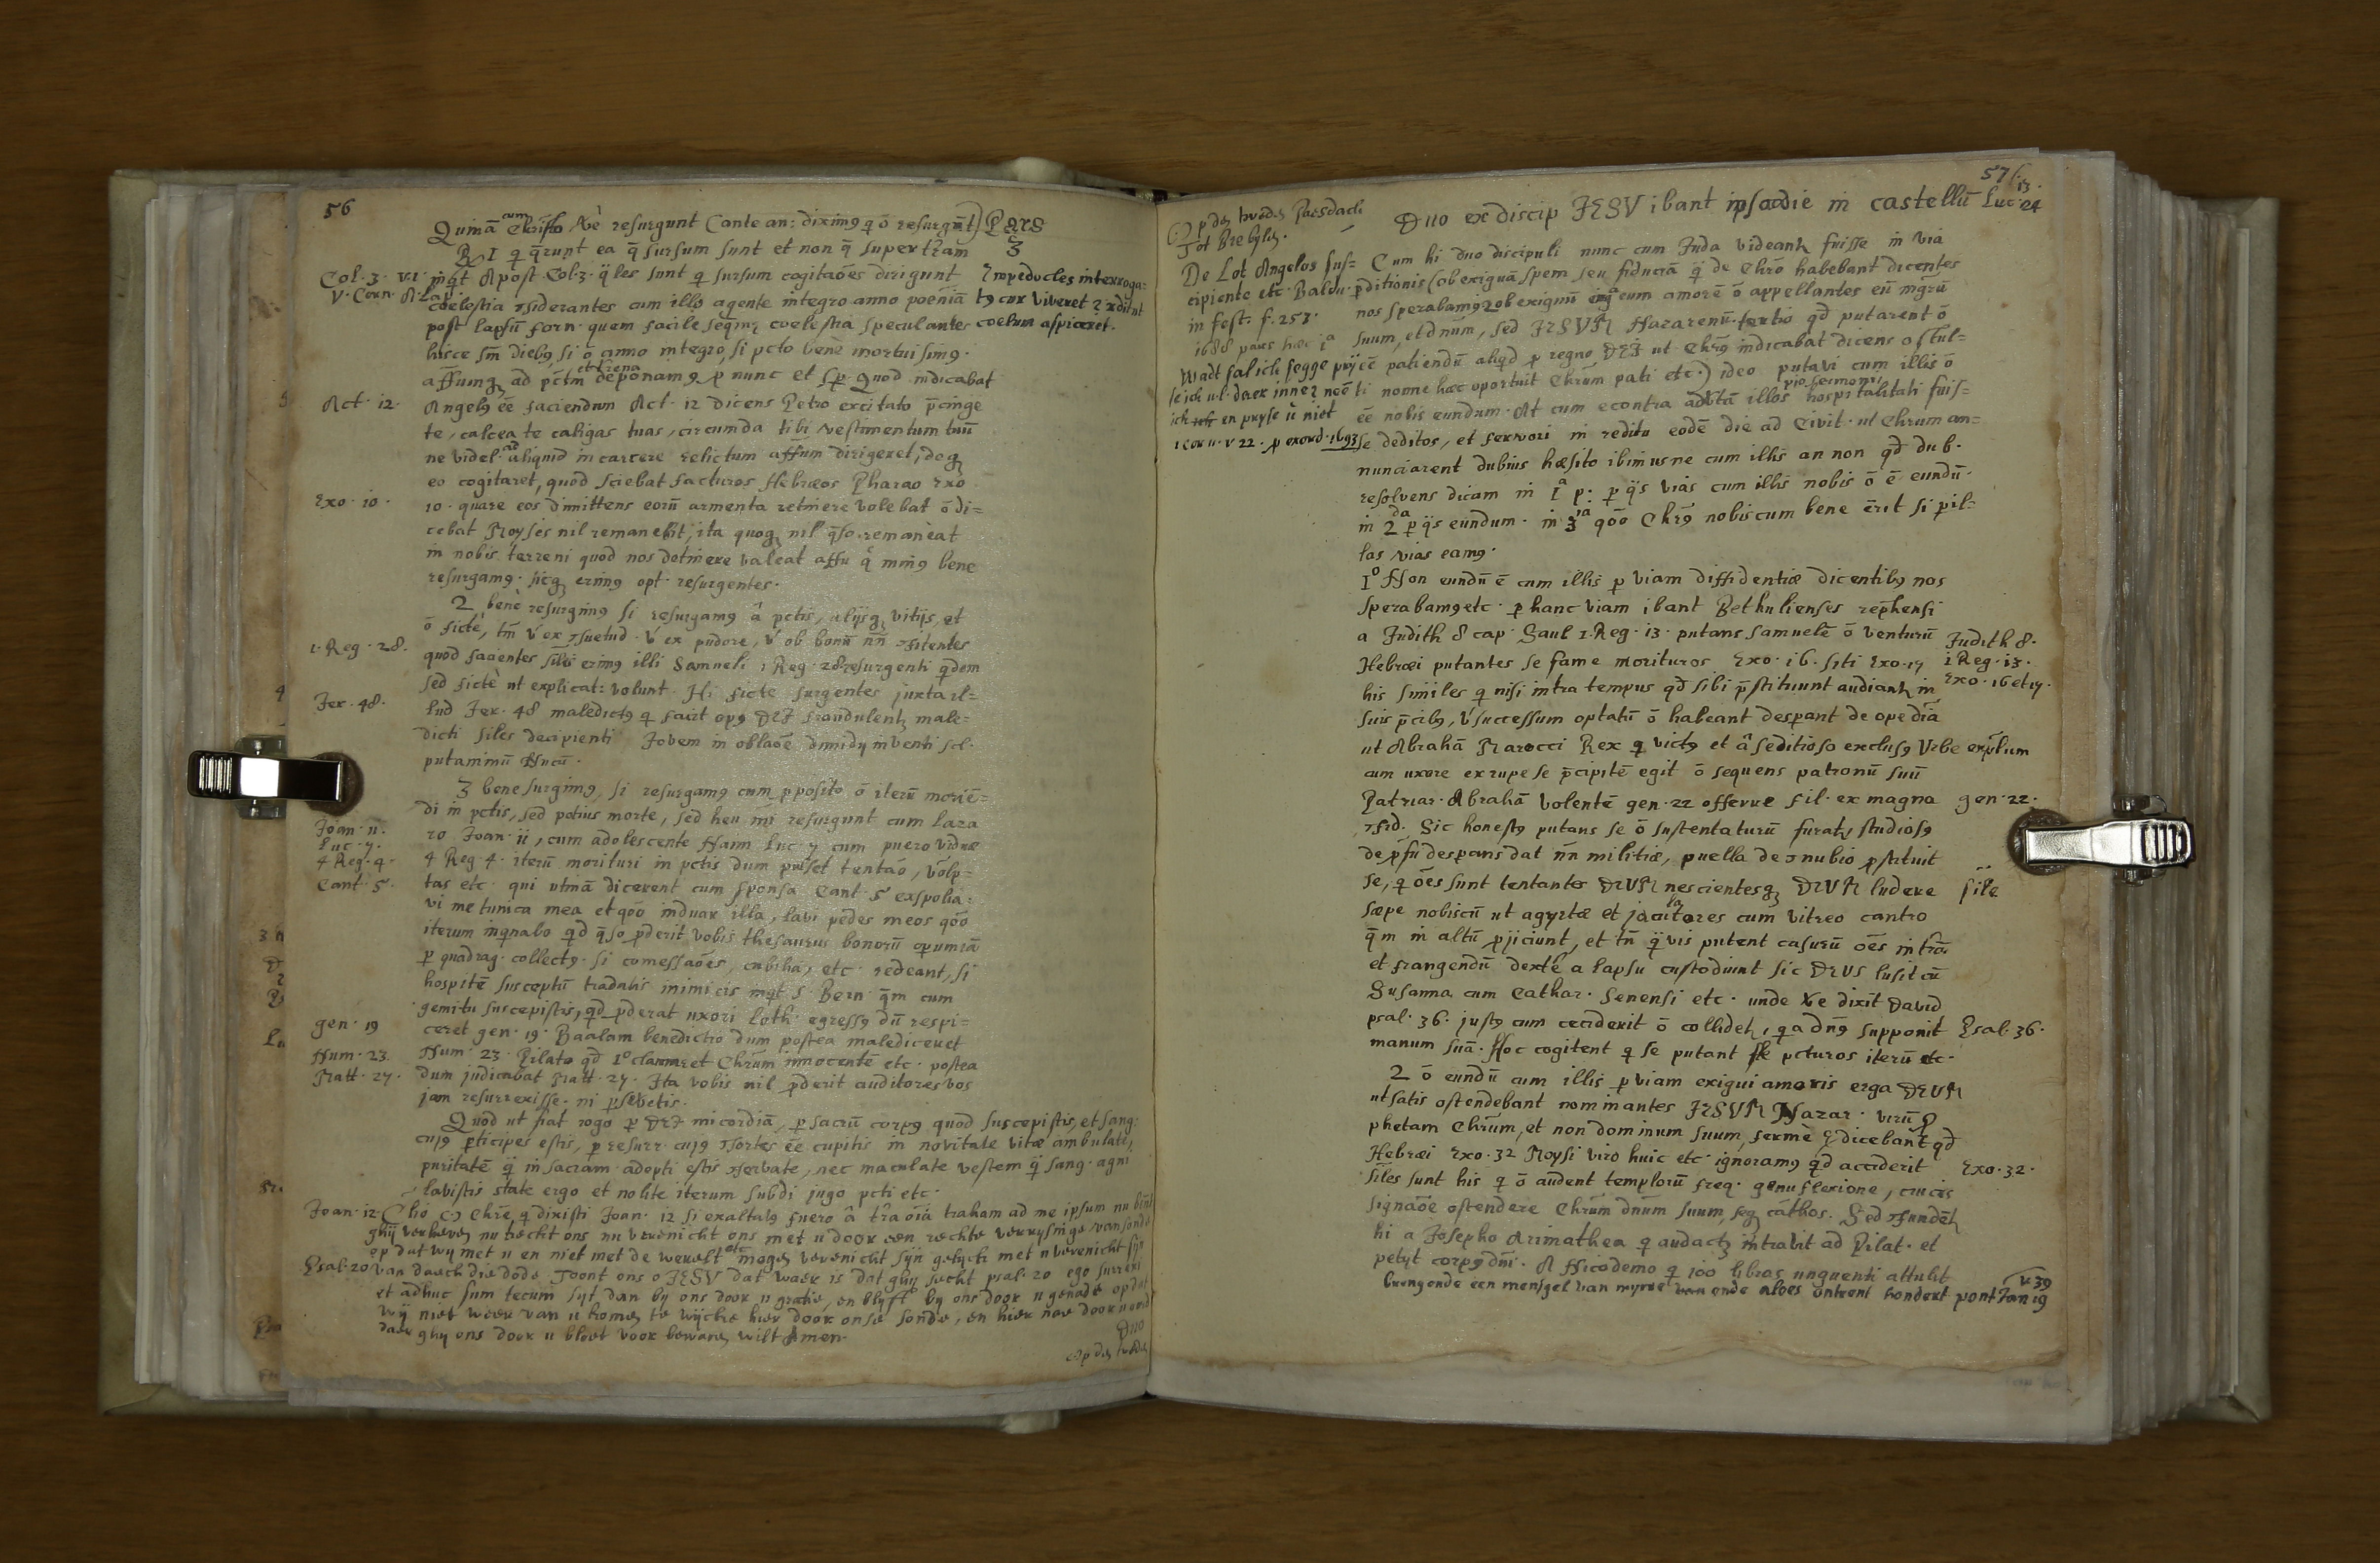 56
Quinā cum Christo Xè resurgunt (ante an: diximq q ō resurgūt) Pars
3
Rx I q q̄runt ea q̄ sursum sunt et non q̄ super trām
Col. 3. v.1. inq̄t Apost Col. 3. q̄les sunt q sursum cogitaōes dirigunt
V. Corn. A Lap.
Empedocles interroga-
coelestia siderantes cum illis agente integro anno poenīā
post lapsū forn. quem facile seq̄mr coelestia speculantes
coelum aspiceret.
hisce sm̄ diebq si ō anno integro, si pcto benè mortui simq.
affumq ad pc̄tm et frena deponamq p nunc et sp. Quod indicabat
Act. 12. Angelq ēe faciendum Act. 12 dicens Petro excitato p̄cinge
te, calcea te caligas tuas, circumda tibi vestimentum tuū
ne videl. ad aliquid in carcere relictum affum dirigeret, deq
eo cogitaret, quod sciebat facturos Hebræos Pharao Exo
Exo. 10. 10. quare eos dimittens eorū armenta retinere volebat ō di=
cebat Moyses nil remanebit, ita quoq nil q̄so remaneat
in nobis terreni quod nos detinere valeat affu q̄ minq bene
resurgamq. sicq erimq opt. resurgentes.
2 benè resurgimq si resurgamq â pctis, alijsq vitijs, et
ō fictè, tm̄ v ex suetud. v ex pudore, v ob bonū nn̄ fitentes
1. Reg. 28. quod facientes siles erimq illi Samueli 1 Reg. 28 resurgenti q̄dem
sed fictè ut explicat: volunt. Hi ficte surgentes juxta il=
Jer. 48. lud Jer. 48 maledictq q facit opq DEI fraudulentr male=
dicti siles decipienti Jovem in oblaōe dimidij inventi sil.
putaminū Nucū.
3 bene surgimq, si resurgamq cum pposito ō iterū moriē=
di in pctis, sed potius morte, sed heu mi resurgunt cum Laza
Joan. 11. ro Joan. 11, cum adolescente Naim Luc 7 cum puero viduæ
Luc. 7.
4 Reg. 4. 4 Reg 4. iterū morituri in pctis dum pulset tentaō, volp=
Cant. 5. tas etc. qui utinā dicerent cum sponsa Cant. 5 exspolia=
vi me tunica mea et qōo induar illa, lavi pedes meos qōo
iterum inqnabo qd q̄so pderit vobis thesaurus bonorū operum
p quadrag. collectq. si comessaōes, cubilia, etc. redeant, si
hospitē susceptū tradatis inimicis inqt S. Bern. q̄m cum
gemitu suscepistis, qd pderat uxori Loth egressq dū respi=
gen. 19 ceret gen. 19. Baalam benedictio dum postea malediceret
Num. 23. Num. 23. Pilato qd 1° clamaret Chrūm innocentē etc. postea
Matt. 27. dum judicabat Matt. 27. Ita vobis nil pderit auditores vos
jam resurrexisse. ni pseveretis.
Quod ut fiat rogo p DEI micordiā, p sacrū corpq quod suscepistis, et sang:
cujq pticipes estis, p resurr. cujq sortes ēe cupitis in novitate vitæ ambulate,
puritatē q̄ in sacram. adepti estis servate, nec maculate vestem q̄ sang. agni
lavistis state ergo et nolite iterum subdi jugo pcti etc.
Joan. 12. Chrē q dixisti Joan. 12 si exaltatq fuero â trā oīā traham ad me ipsum nu bint
ghij verheven nu trecht ons nu verenicht ons met u door een rechte verrysinge van sonde
op dat wij met u en niet met de werelt etc mogen verenicht sijn gelyck met u verenicht sijn
Psal. 20 van daech die dode Toont ons o JESV dat waer is dat ghij secht psal. 20 ego surrexi
et adhuc sum tecum sijt dan bij ons door u gratie, en blijft bij ons door u genade op dat
wij niet weer van u komen te wijcken hier door onse sonde, en hier nae door u oord
daer ghij ons door u bloet voor bewaren wilt Amen.
Duo
Op den twede
57
13.
Op den tweden Paesdach
Tot Brekylen.
Duo ex discip JESV ibant ipsa die in castellū Luc 24
De Lot Angelos sus=
cipiente etc. Baldu.
in fest. f. 257.
1688 pars hæc 1a
Wadt sal ick segge prijse ick
u l. daer in nee
ick en pryse u niet
1 Cor 11. v 22. p exord. 1693
Cum hi duo discipuli nunc cum Juda videantr fuisse in via
pditionis (ob exiguā spem seu fiduciā q̄ de Chrō habebant dicentes
nos sperabamq 2 ob exiguū erga eum amorē ō appellantes eū mgrū
suum, et dnūm, sed JESVM Nazarenū. tertio qd putarent ō
ēe patiendū aliqd p regno DEI ut Chrūs indicabat dicens o stul=
ti nonne hæc oportuit Chrūm pati etc.) ideo putavi cum illis ō
ēe nobis eundum. At cum econtra advertā illos pio sermoni hospitalitati fuis=
se deditos, et fervori in reditu eodē die ad Civit. ut Chrum an=
nunciarent dubius hæsito ibimusne cum illis an non qd dub.
resolvens dicam in 1a p: p q̄s vias cum illis nobis ō ē eundū.
in 2da p q̄s eundum. in 3ia qōo Chrq nobiscum bene erit si p il=
las vias eamq.
1° Non eundū ē cum illis p viam diffidentiæ dicentibq nos
sperabamq etc. p hanc viam ibant Bethulienses rep̄hensi
a Judith 8 cap. Saul 1. Reg. 13. putans Samuelē ō venturū Judith 8.
Hebræi putantes se fame morituros Exo. 16. siti Exo. 17 1 Reg. 13.
his similes q nisi intra tempus qd sibi p̄stituunt audiantr in Exo. 16 et 17.
suis p̄cibq, v successum optatū ō habeant despant de ope divīa
ut Abrahā Marocci Rex q victq et â seditioso exclusq Urbe explum
cum uxore ex rupe se p̄cipitē egit ō sequens patronū suū
Patriar. Abrahā volentē gen. 22 offerre fil. ex magna gen. 22.
fid. Sic honestq putans se ō sustentaturū furatr, studiosq
de pfū desperans dat nn̄ militiæ, puella de nubio pstituit
se, q ōes sunt tentantes DEVM nescientesq DEVM ludere sile
sæpe nobiscū ut agyrtæ et jaculatores cum vitreo cantro
q̄m in altū pjiciunt, et tn̄ q̄vis putent casurū ōes in trā.
et frangendū dextè a lapsu custodiunt sic DEVS lusit cū
Susanna cum Cathar. Senensi etc. unde Xe dixit David
psal. 36. justq cum ceciderit ō collidetr, qa dnūs supponit Psal. 36.
manum suā. Hoc cogitent q se putant se pcturos iterū etc.
2 ō eundū cum illis p viam exigui amoris erga DEVM
ut satis ostendebant nominantes JESVM Nazar. virū p
phetam Chrūm, et non dominum suum, fermè q dicebant qd
Hebræi Exo. 32 Moysi viro huic etc. ignoramq qd acciderit Exo. 32.
siles sunt his q ō audent templorū freq. genuflexione, crucis
signaōe ostendere Chrūm dnūm suum, seq cāthos. Sed fundētr
hi a Josepho Arimathea q audactr intravit ad Pilat. et
petijt corpq dnī. A Nicodemo q 100 libras unguenti attulit
brengende een mensgel van myrre ende aloes ontrent hondert pont Jan 19
v 39